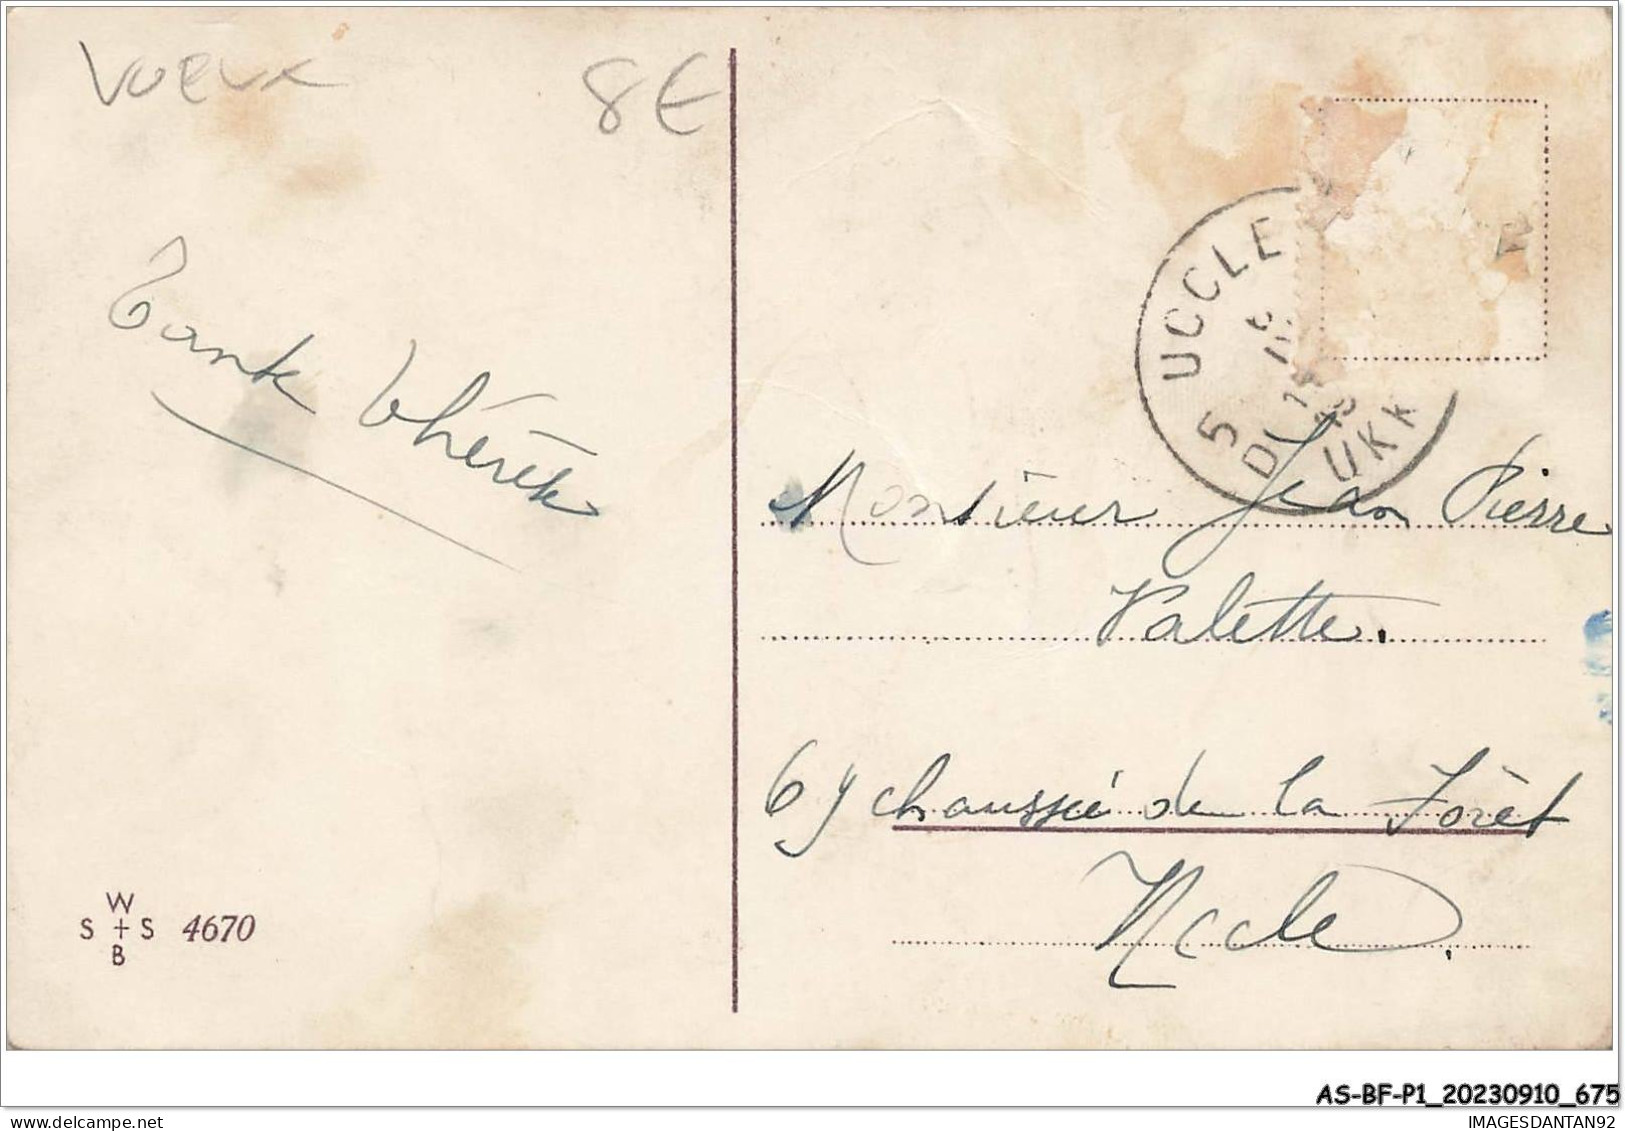 VOEUX
8€
UCCLE
5
UKK
Tante Thérèse
Monsieur Jean Pierre
Valette.
69 chaussée de la Forêt
Uccle.
W
S + S 4670
B
AS-BF-P1_20230910_675
IMAGESDANTAN92